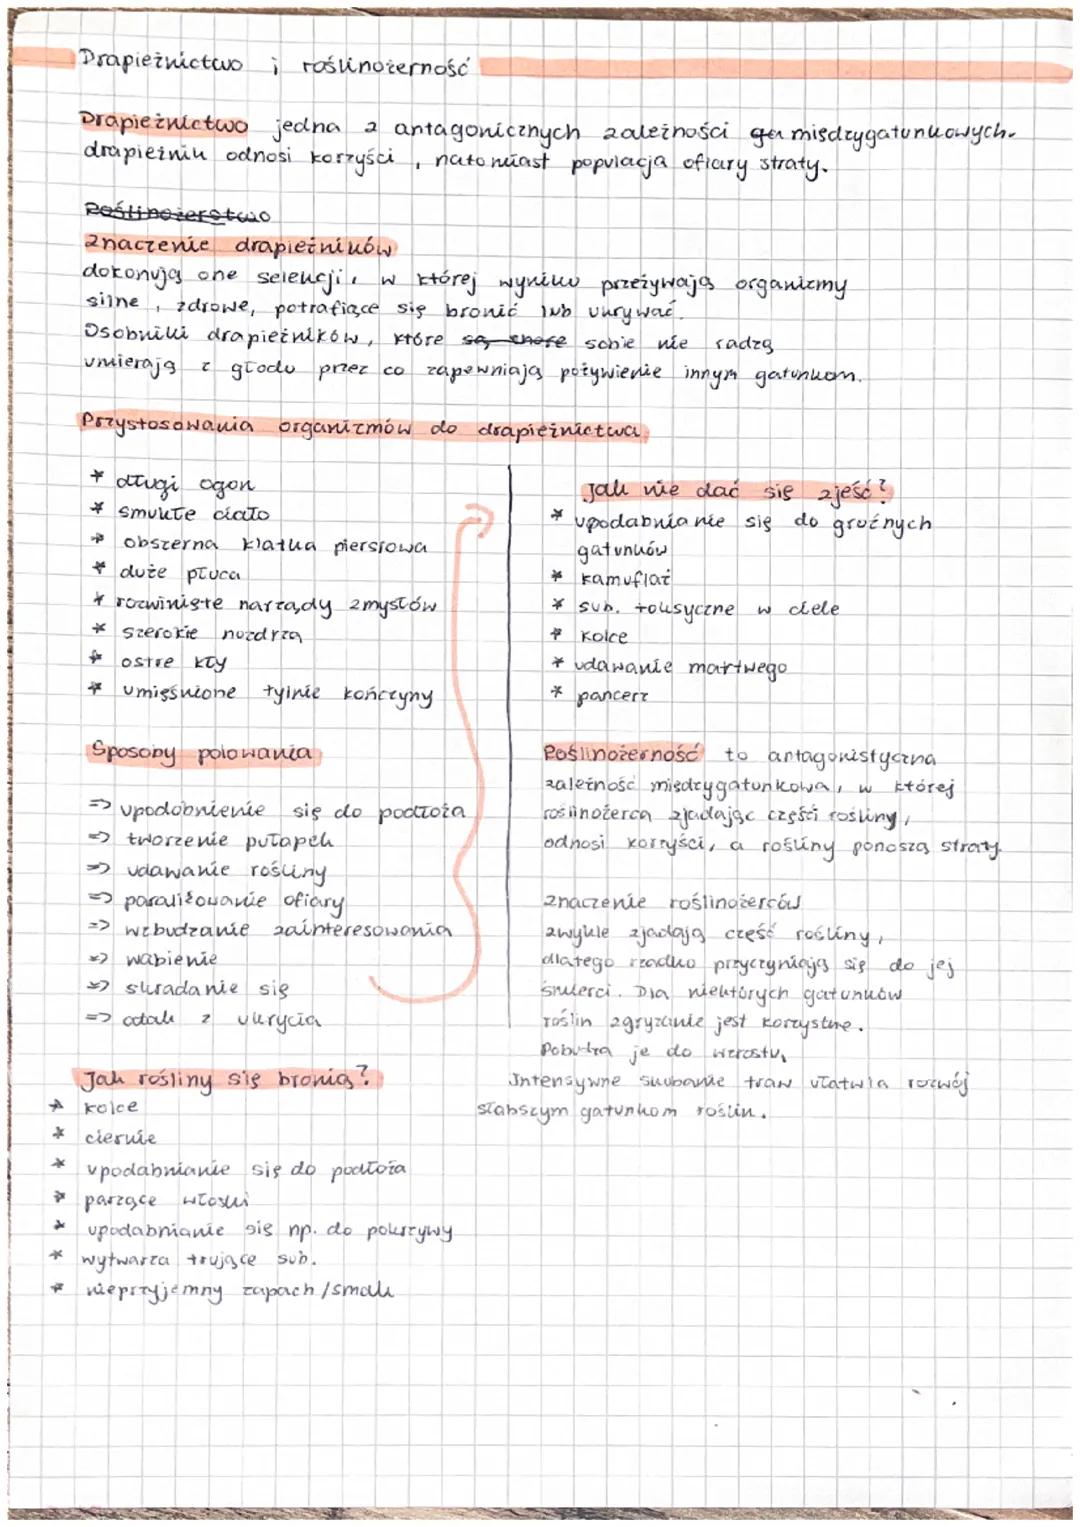 Drapieżnictwo i roślinożerność
Drapieżnictwo jedna z antagonicznych zależności międzygatunkowych.
drapieżnik odnosi korzyści, natomiast populacja ofiary straty.
Roślinożerstwo
Znaczenie drapieżników
dokonują one selekcji, w której wyniku przeżywają organizmy
silne, zdrowe, potrafiące się bronić lub ukrywać.
Osobniki drapieżników, które są chore sobie nie radzą
umierają z głodu przez co zapewniają pożywienie innym gatunkom.
Przystosowania organizmów do drapieżnictwa
* długi ogon
* smukłe ciało
* obszerna klatka piersiowa
* duże płuca
* rozwinięte narządy zmysłów
* szerokie nozdrza
* ostre kły
* umięśnione tylnie kończyny
Sposoby polowania
=> upodobnienie się do podłoża
=> tworzenie pułapek
=> udawanie rośliny
=> paraliżowanie ofiary
=> wzbudzanie zainteresowania
=> wabienie
=> skradanie się
=> atak z ukrycia
Jak rośliny się bronią?
* kolce
* ciernie
* upodabnianie się do podłoża
* parzące włoski
* upodabnianie się np. do pokrzywy
* wytwarza trujące sub.
* nieprzyjemny zapach/smak
Jak nie dać się zjeść?
* upodabnianie się do groźnych
gatunków
* kamuflaż
* sub. toksyczne w ciele
* kolce
* udawanie martwego
* pancerz
Roślinożerność to antagonistyczna
zależność międzygatunkowa, w której
roślinożerca zjadając części rośliny,
odnosi korzyści, a rośliny ponoszą straty.
znaczenie roślinożerców
zwykle zjadają część rośliny,
dlatego rzadko przyczyniają się do jej
śmierci. Dla niektórych gatunków
roślin zgryzanie jest korzystne.
Pobudza je do wzrostu,
Intensywne skubanie traw ułatwia rozwój
słabszym gatunkom roślin.